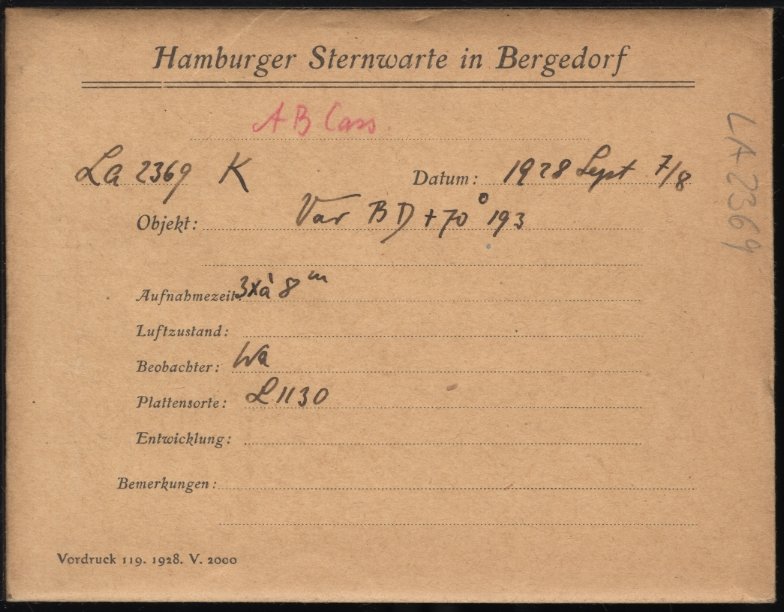 Hamburger Sternwarte in Bergedorf
AB Cass
La 2369 K Datum: 1928 Sept 7/8
Objekt: Var BD +70° 193
Aufnahmezeit: 3x à 8 m
Luftzustand:
Beobachter: Wa
Plattensorte: L 1130
Entwicklung:
Bemerkungen:
Vordruck 119. 1928. V. 2000
LA 2369